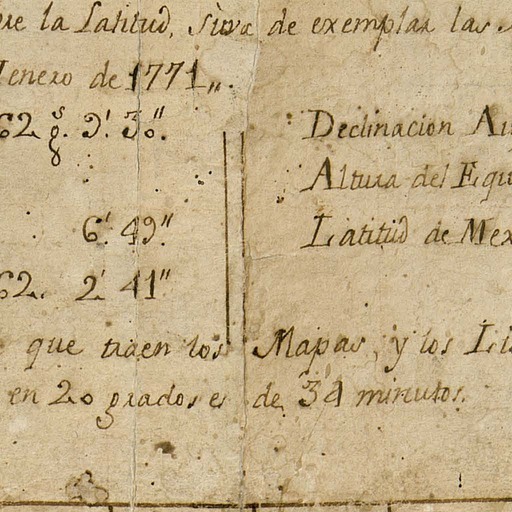 la Latitud, sirva de exemplar las
enero de 1771,,.
62 g.s 9'. 30''.
Declinacion
Altura del Equ
6'. 49''.
Latitud de Mex
62. 2' 41''
que traen los Mapas, y los Li
en 20 grados es de 34 minutos.